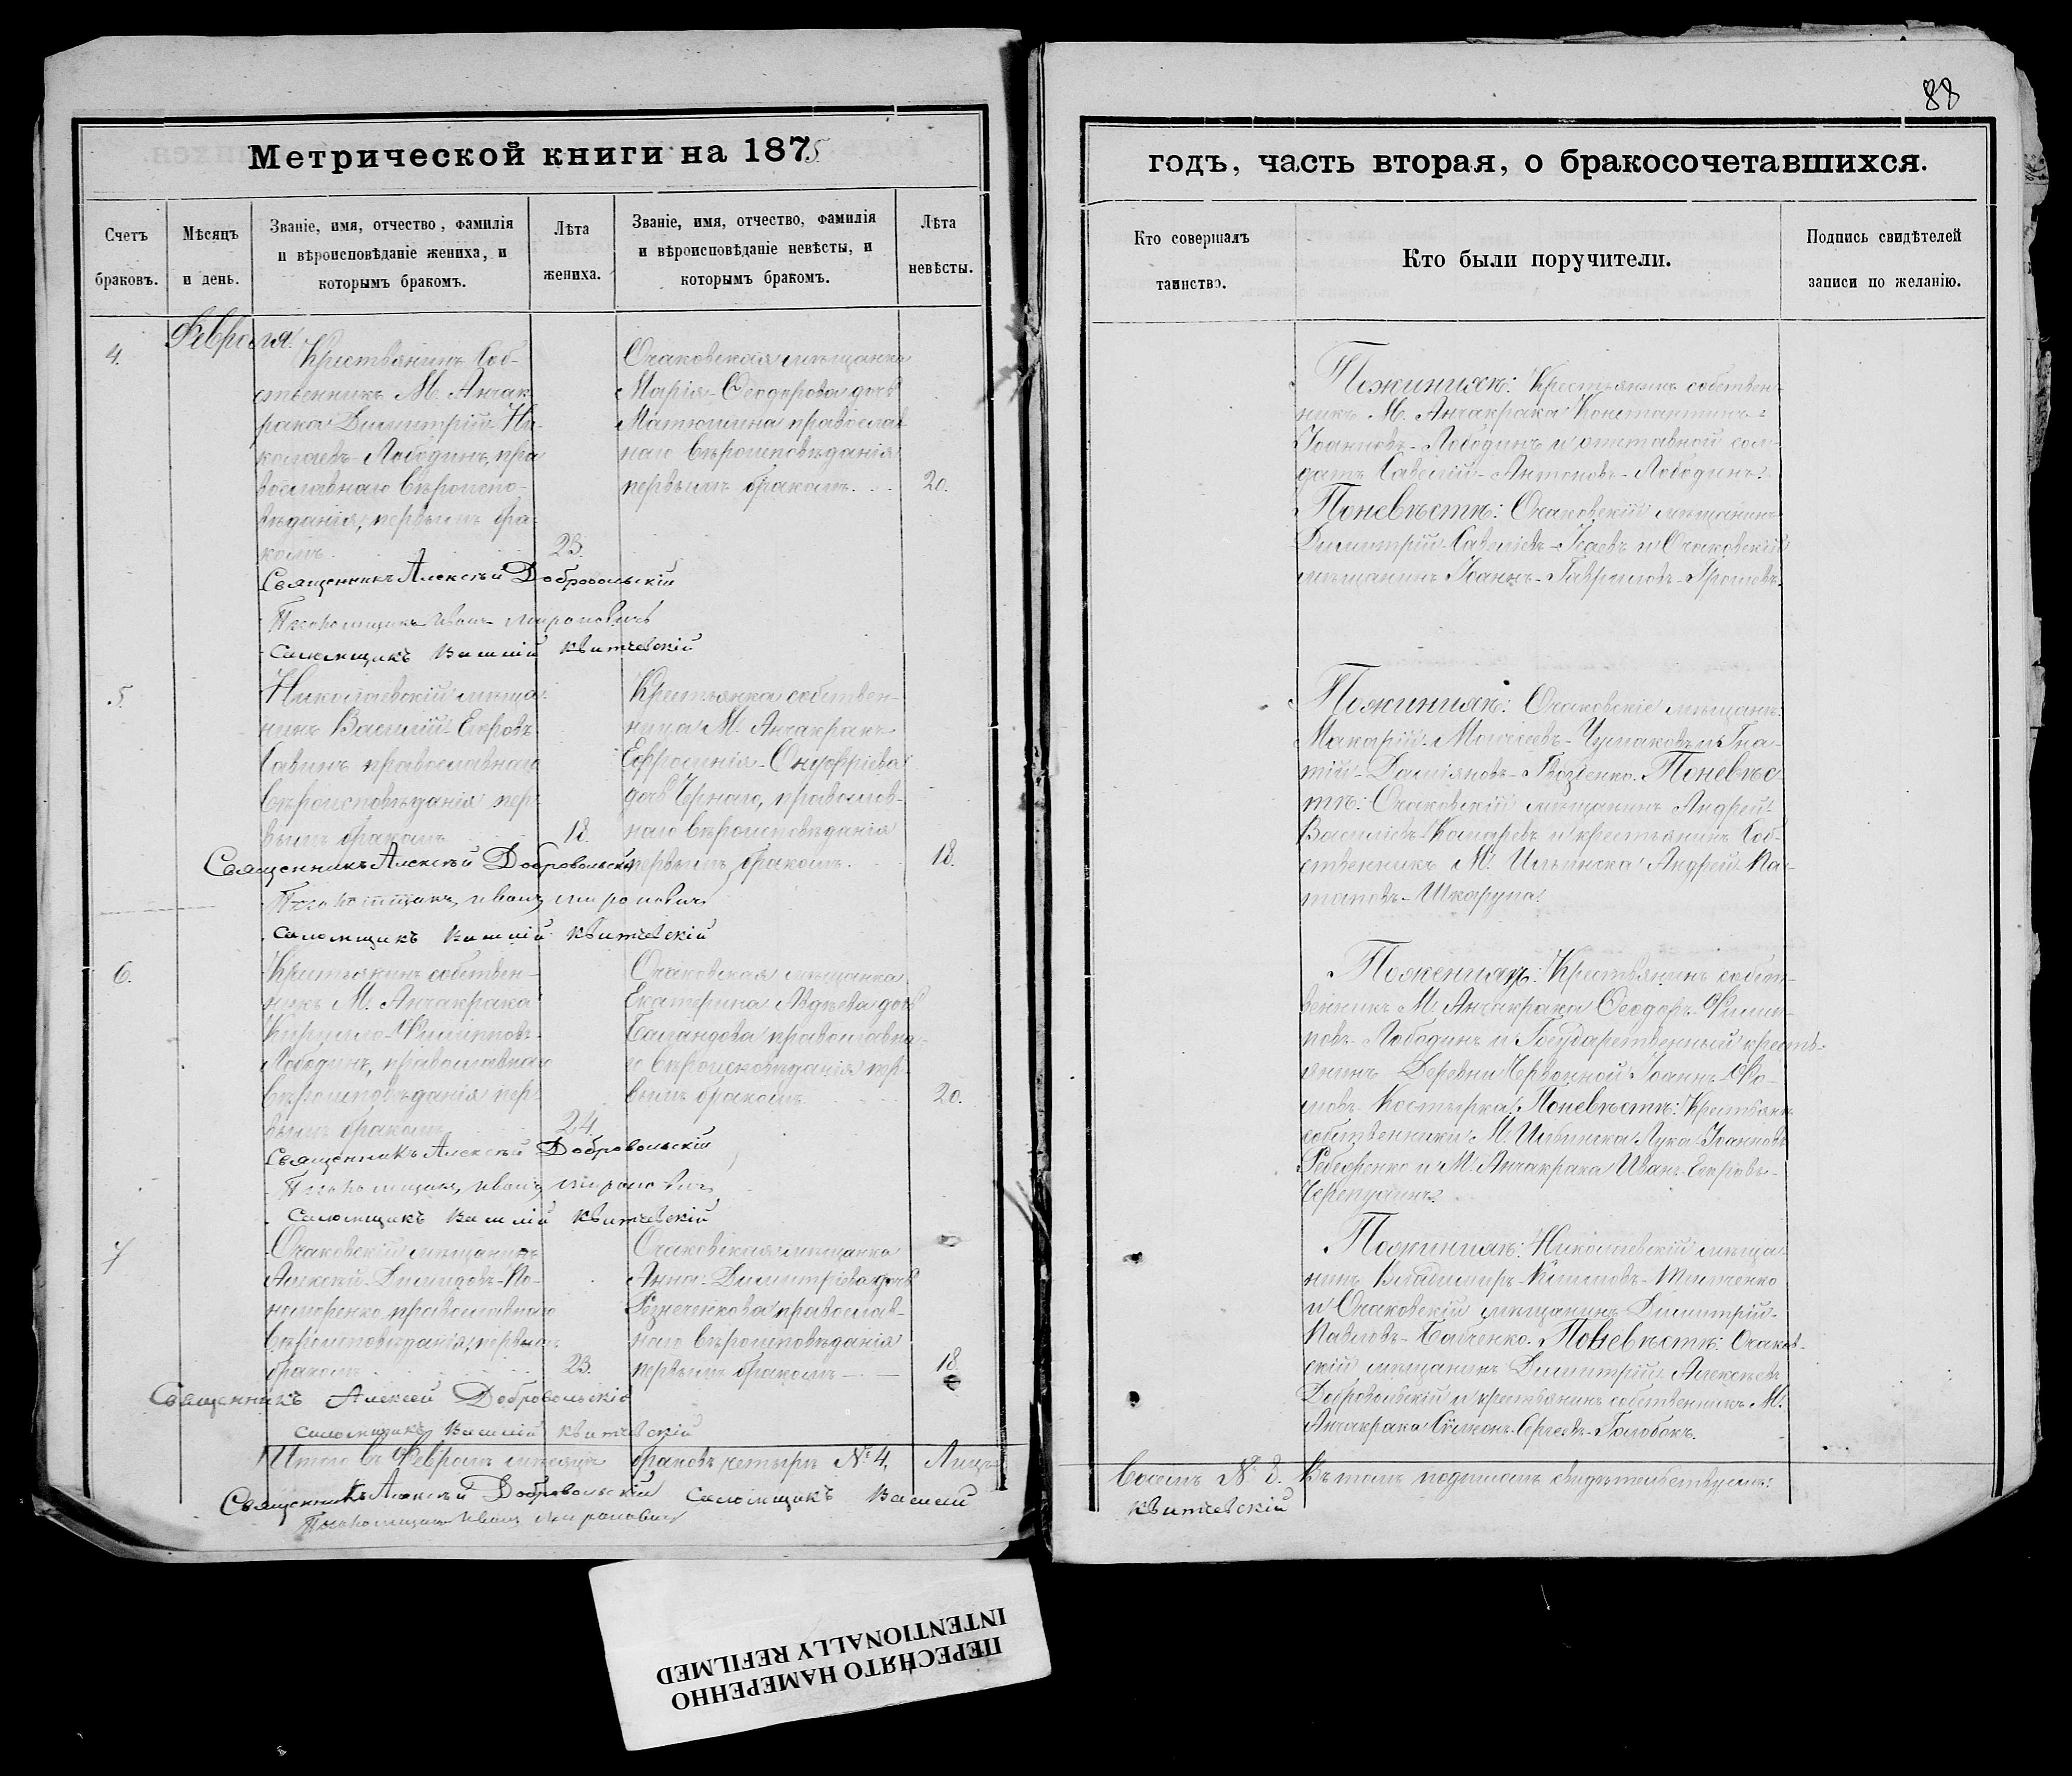 88
Метрической книги на 1875
годъ, часть вторая, о бракосочетавшихся.
Счетъ браковъ.
Мѣсяцъ и день.
Званіе, имя, отчество, фамилія
и вѣроисповѣданіе жениха, и
которымъ бракомъ.
Лѣта жениха.
Званіе, имя, отчество, фамилія
и вѣроисповѣданіе невѣсты, и
которымъ бракомъ.
Лѣта невѣсты.
Кто совершалъ
таинство.
Кто были поручители.
Подпись свидѣтелей
записи по желанію.
Февраля
4.
Крестьянинъ Соб-
ственникъ М. Анчак
рака Димитрій Ни-
колаевъ Лободинъ, пра
вославнаго вѣроиспо-
вѣданія, первымъ бра-
комъ
23.
Очаковская мѣщанка
Марія Ѳеодорова дочь
Матюшина православ
наго вѣроисповѣданія
первымъ бракомъ.
20.
Священникъ Алексѣй Добровольскій
Иванъ Мироновичъ
Василій Квитчевскій
Поженихѣ: Крестьянинъ собствен
никъ М. Анчакрака Константинъ
Іоанновъ Лободинъ и отставной сол-
датъ Савелій Антоновъ Лободинъ.
Поневѣстѣ: Очаковскій мѣщанинъ
Димитрій Савеліевъ Исаевъ и Очаковскій
мѣщанинъ Іоаннъ Гавриловъ
5.
Николаевскій мѣща-
нинъ Василій Егоровъ
Савинъ православнаго
вѣроисповѣданія пер-
вымъ бракомъ
18.
Крестьянка собствен-
ница М. Анчакракъ
Ефросинія Онуфріева
дочь Чернаго, православ-
наго вѣроисповѣданія
первымъ бракомъ.
18.
Священникъ Алексѣй Добровольскій
Иванъ Мироновичъ
Василій Квитчевскій
Поженихѣ: Очаковскіе мѣщане:
Макарій Моисеевъ Чумаковъ и Игна-
тій Даміяновъ Гвозденко. Поневѣс
тѣ: Очаковскій мѣщанинъ Андрей
Василіевъ Комаревъ и крестьянинъ Соб-
ственникъ М. Ильинска Андрей По-
таповъ Шкарупа.
6.
Крестьянинъ собствен-
никъ М. Анчакрака
Кирилло Филипповъ
Лободинъ, православнаго
вѣроисповѣданія пер-
вымъ бракомъ
24.
Очаковская мѣщанка
Екатерина Авдѣева дочь
Баландова православна-
го вѣроисповѣданія пер-
вымъ бракомъ.
20.
Священникъ Алексѣй Добровольскій
Иванъ Мироновичъ
Василій Квитчевскій
Поженихѣ: Крестьянинъ собст-
венникъ М. Анчакрака Ѳеодоръ Филип-
повъ Лободинъ и Государственный кресть-
янинъ Деревни Червонной Іоаннъ Ѳо-
мовъ Костырка. Поневѣстѣ: Крестьяне
собственники М. Ильинска Лука Іоанновъ
и М. Анчакрака Иванъ Егоровъ
Черепухинъ.
7
Очаковскій мѣщанинъ
Алексѣй Демидовъ По-
номаренко, православнаго
вѣроисповѣданія, первымъ
бракомъ
23.
Очаковская мѣщанка
Анна Димитріева дочь
Резниченкова православ-
наго вѣроисповѣданія
первымъ бракомъ
18
Священникъ Алексей Добровольскій
Василій Квитчевскій
Поженихѣ: Николаевскій мѣща
нинъ Владимиръ Климовъ Тимченко
и Очаковскій мѣщанинъ Димитрій
Павловъ Бабченко. Поневѣстѣ: Очаков-
скій мѣщанинъ Димитрій Алексѣевъ
Добровольскій и крестьянинъ собственникъ М.
Анчакрака Симеонъ Сергѣевъ Голобокъ.
Итого въ Февралѣ мѣсяцѣ браковъ четыре № 4, Лицъ
восемь № 8. Въ томъ подписомъ свидѣтельствуемъ:
Священникъ Алексѣй Добровольскій Василій
Квитчевскій
Иванъ Мироновичъ
ПЕРЕСНЯТО НАМЕРЕННО
INTENTIONALLY REFILMED